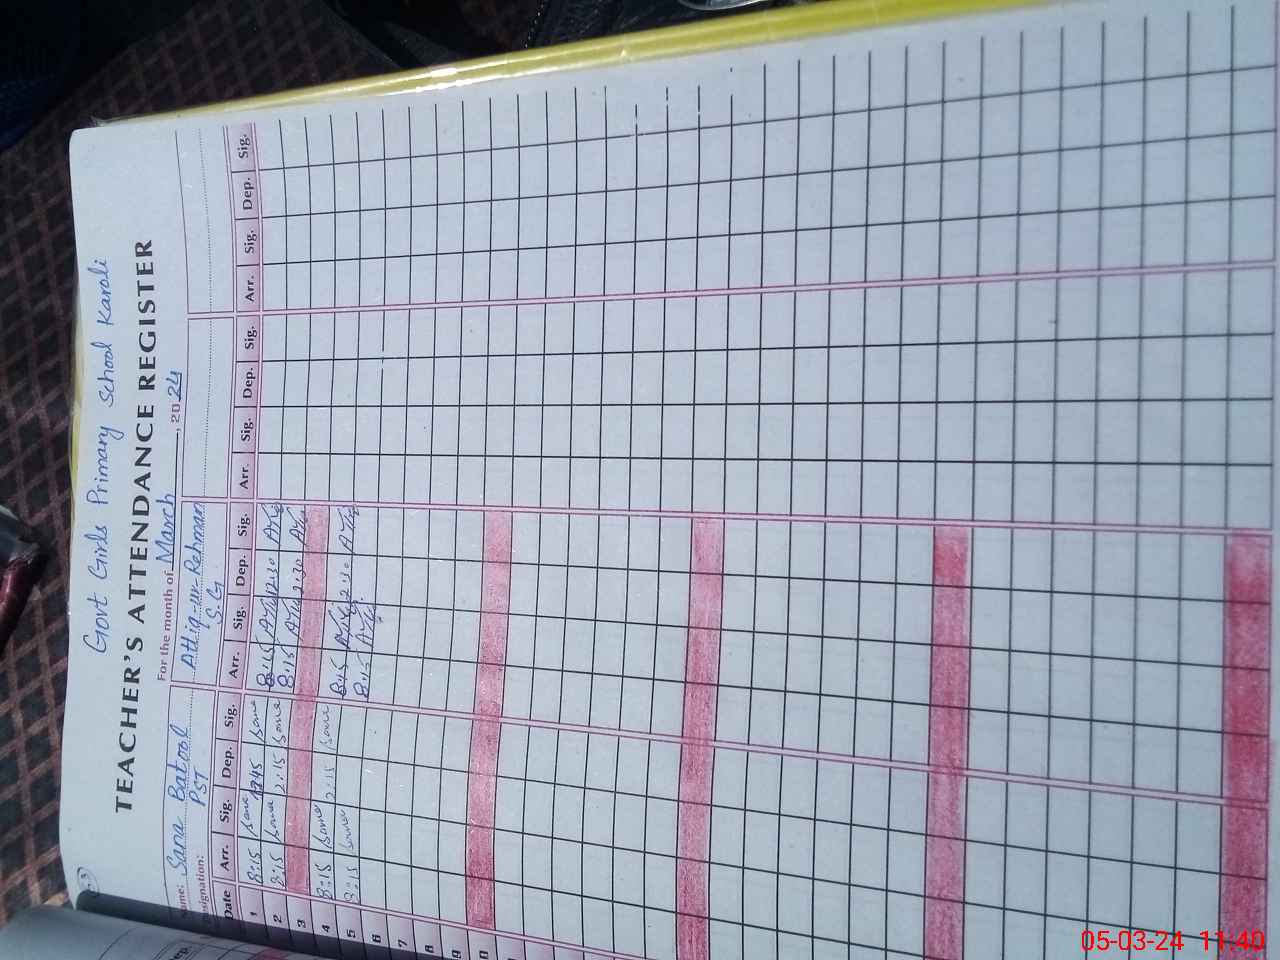 Govt Girls Primary School Karoli
TEACHER'S ATTENDANCE REGISTER
For the month of March, 2024
ame: Sana Batool Attiq-ur-Rehman
signation: PST S.G
Date Arr. Sig. Dep. Sig. Arr. Sig. Dep. Sig. Arr. Sig. Dep. Sig. Arr. Sig. Dep. Sig.
1 8:15 Sana 12:45 Sana 8:15 12:30
2 8:15 Sana 2:15 Sana 8:15 2:30
3
4 8:15 Sana 2:15 Sana 8:15 2:30
5 8:15 Sana 8:15
6
7
8
9
05-03-24 11:40